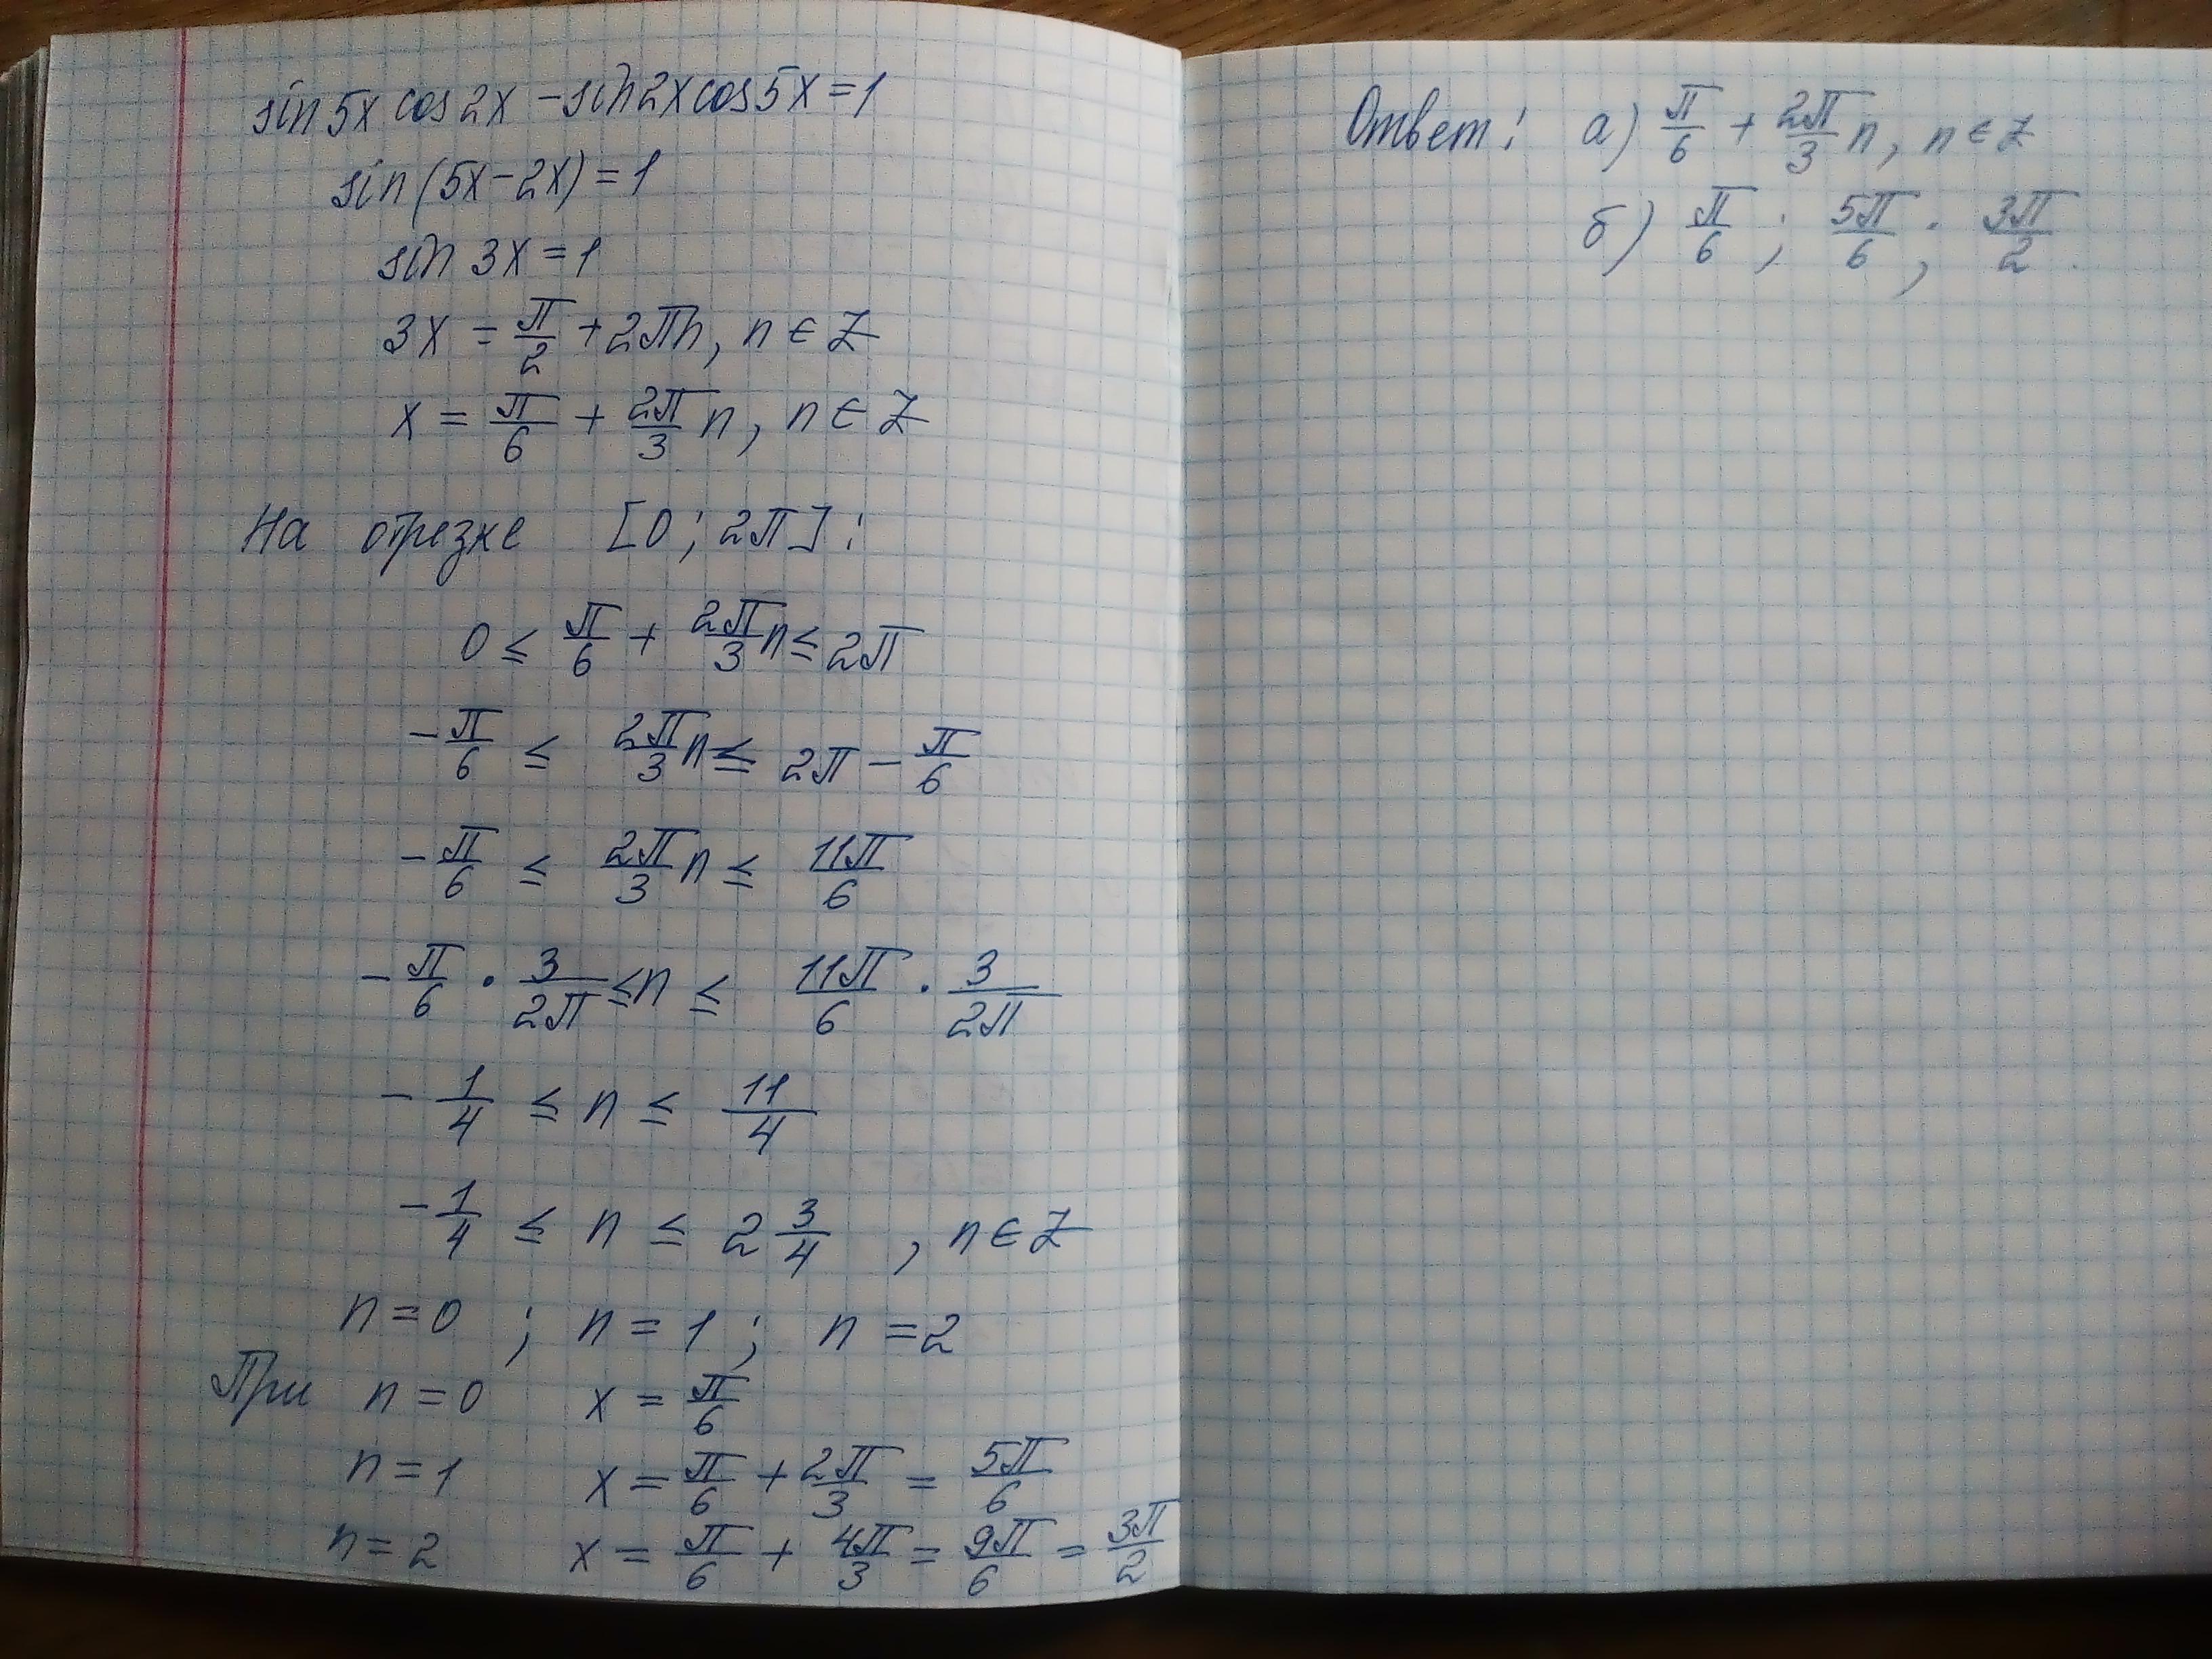 sin 5x cos 2x − sin 2x cos 5x = 1
sin (5x − 2x) = 1
sin 3x = 1
3x = π/2 + 2πn, n ∈ Z
x = π/6 + 2π/3 n, n ∈ Z
На отрезке [0; 2π]:
0 ≤ π/6 + 2π/3 n ≤ 2π
−π/6 ≤ 2π/3 n ≤ 2π − π/6
−π/6 ≤ 2π/3 n ≤ 11π/6
−π/6 · 3/2π ≤ n ≤ 11π/6 · 3/2π
−1/4 ≤ n ≤ 11/4
−1/4 ≤ n ≤ 2 3/4, n ∈ Z
n = 0; n = 1; n = 2
При n = 0 x = π/6
n = 1 x = π/6 + 2π/3 = 5π/6
n = 2 x = π/6 + 4π/3 = 9π/6 = 3π/2
Ответ: а) π/6 + 2π/3 n, n ∈ Z
б) π/6; 5π/6; 3π/2.